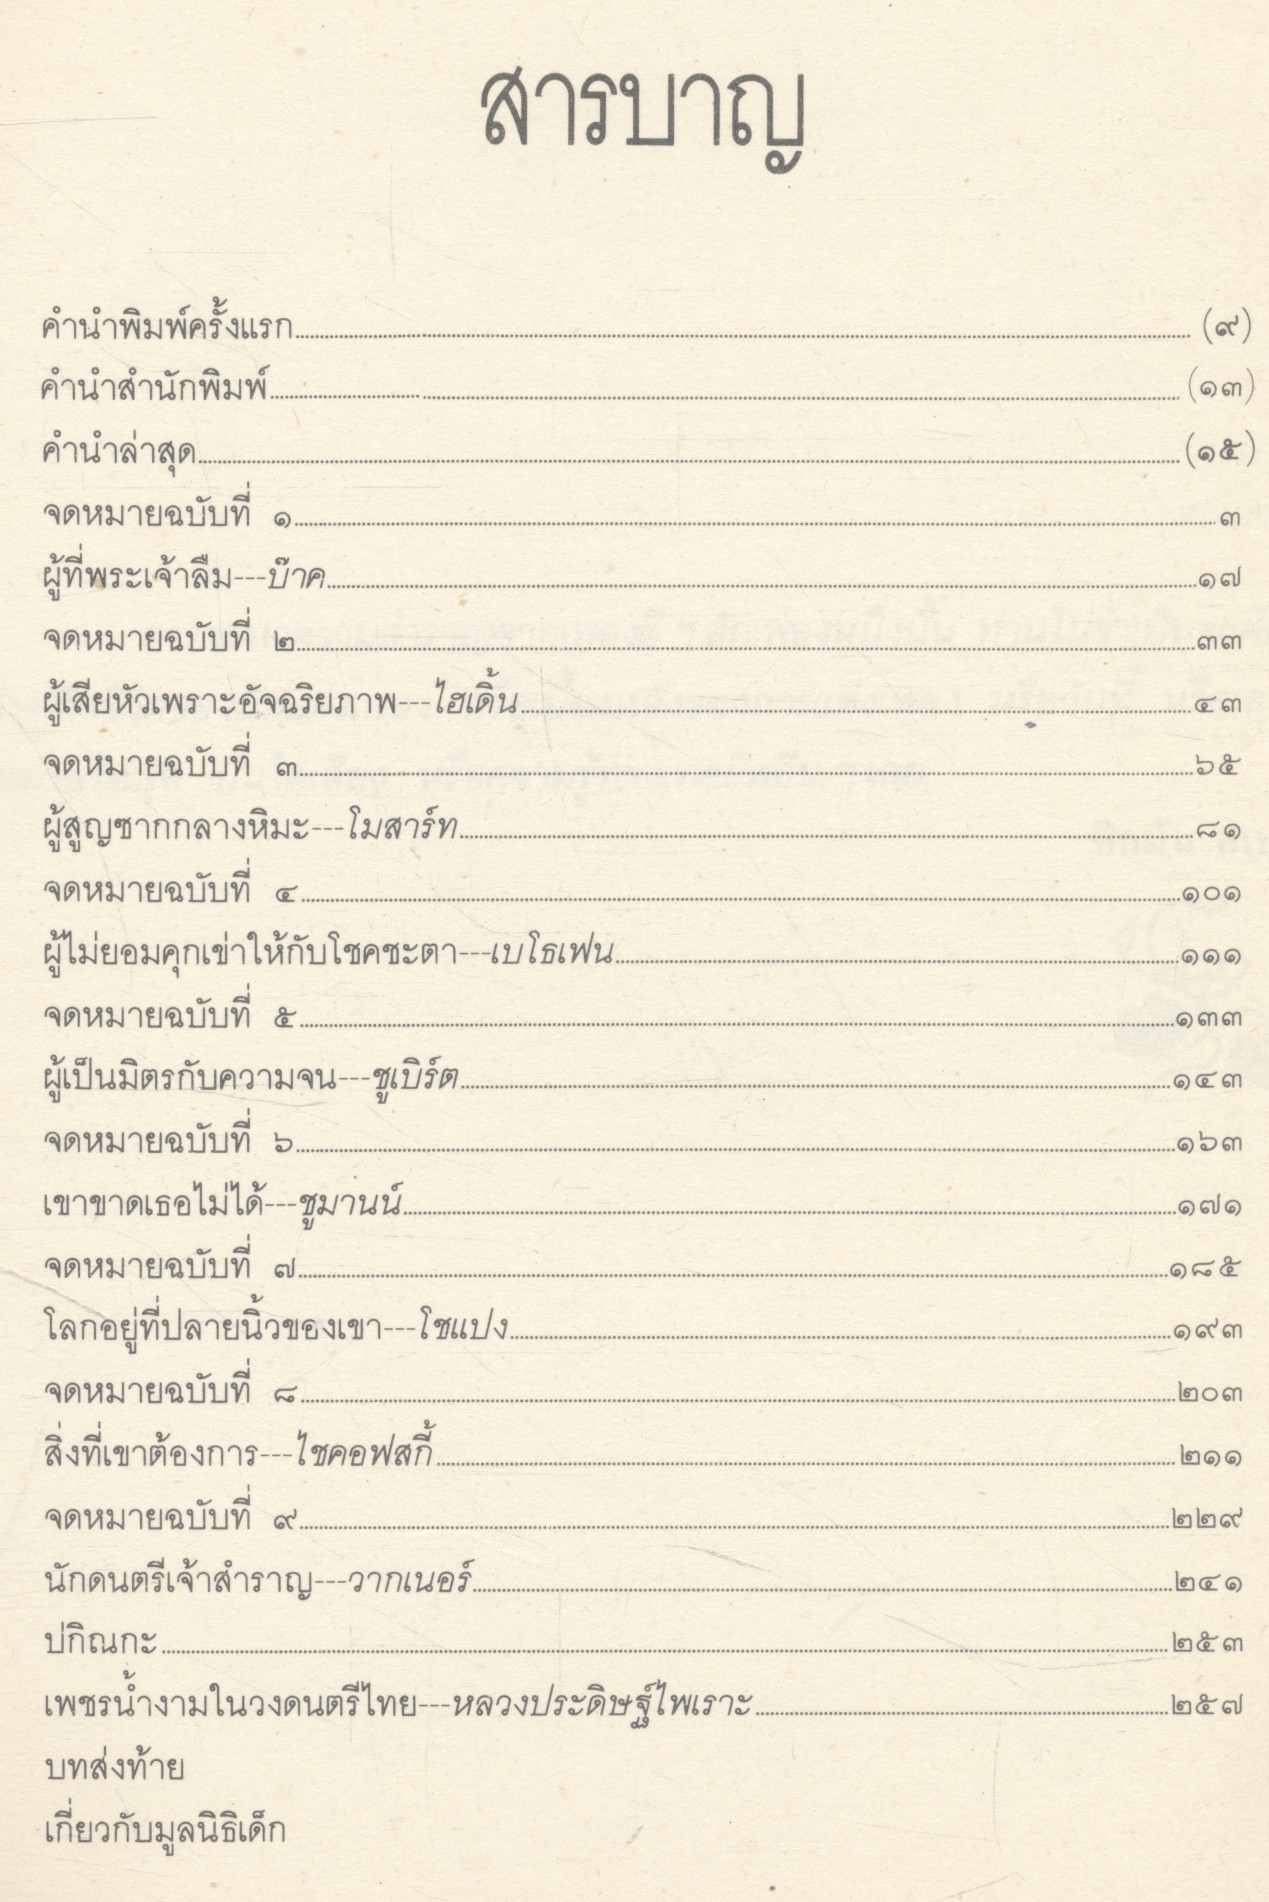 สารบาญ
คำนำพิมพ์ครั้งแรก (๙)
คำนำสำนักพิมพ์ (๑๓)
คำนำล่าสุด (๑๕)
จดหมายฉบับที่ ๑ ๓
ผู้ที่พระเจ้าลืม---บ๊าค ๑๗
จดหมายฉบับที่ ๒ ๓๓
ผู้เสียหัวเพราะอัจฉริยภาพ---ไฮเดิ้น ๔๓
จดหมายฉบับที่ ๓ ๖๕
ผู้สูญซากกลางหิมะ---โมสาร์ท ๘๑
จดหมายฉบับที่ ๔ ๑๐๑
ผู้ไม่ยอมคุกเข่าให้กับโชคชะตา---เบโธเฟน ๑๑๑
จดหมายฉบับที่ ๕ ๑๓๓
ผู้เป็นมิตรกับความจน---ชูเบิร์ต ๑๔๓
จดหมายฉบับที่ ๖ ๑๖๓
เขาขาดเธอไม่ได้---ชูมานน์ ๑๗๑
จดหมายฉบับที่ ๗ ๑๘๕
โลกอยู่ที่ปลายนิ้วของเขา---โชแปง ๑๙๓
จดหมายฉบับที่ ๘ ๒๐๓
สิ่งที่เขาต้องการ---ไชคอฟสกี้ ๒๑๑
จดหมายฉบับที่ ๙ ๒๒๙
นักดนตรีเจ้าสำราญ---วากเนอร์ ๒๔๑
ปกิณกะ ๒๕๓
เพชรน้ำงามในวงดนตรีไทย---หลวงประดิษฐ์ไพเราะ ๒๕๗
บทส่งท้าย
เกี่ยวกับมูลนิธิเด็ก